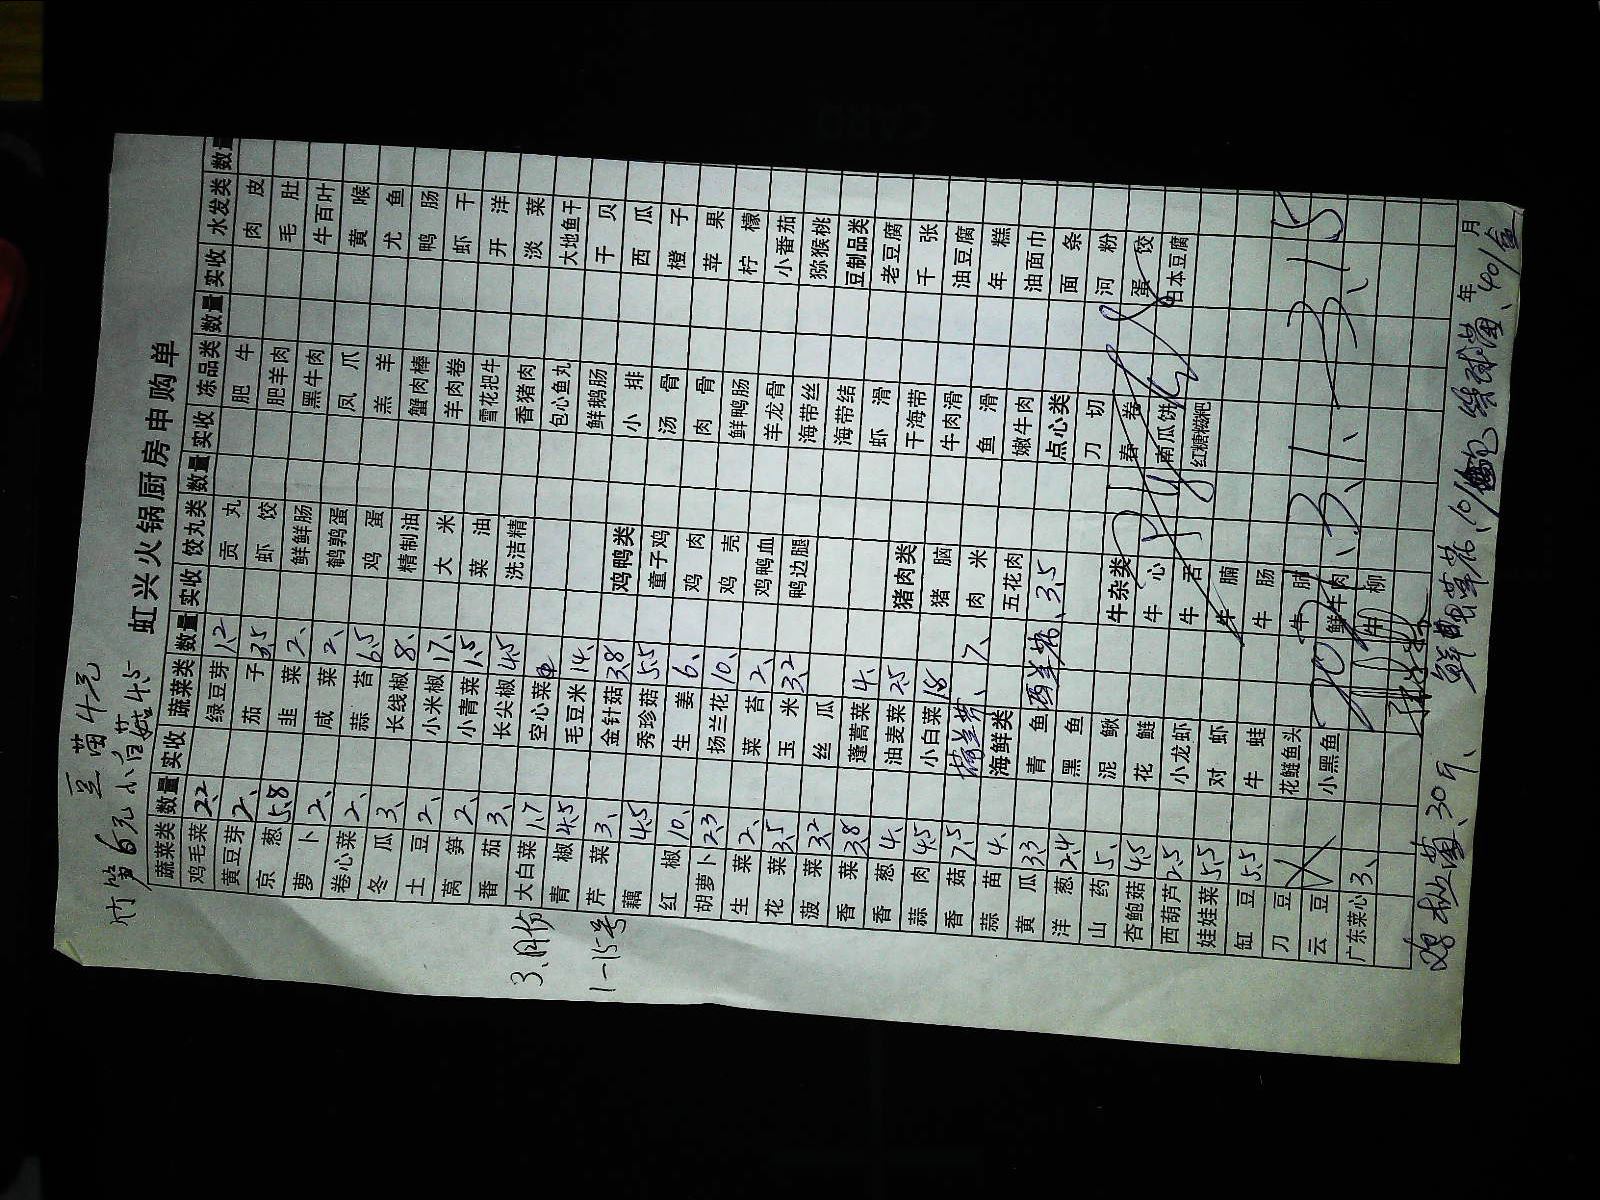 豆苗4元
竹笋6元 小白菇4.5
虹兴火锅厨房申购单
蔬菜类 数量 实收 蔬菜类 数量 实收 饺丸类 数量 实收 冻品类 数量 实收 水发类 数量
鸡毛菜 2.2 绿豆芽 1.2 贡丸 肥牛 肉皮
黄豆芽 2、 茄子 3.5 虾饺 肥羊肉 毛肚
京葱 5.8 韭菜 2、 鲜鲜肠 黑牛肉 牛百叶
萝卜 2、 咸菜 2、 鹌鹑蛋 凤爪 黄喉
卷心菜 2、 蒜苔 6.5 鸡蛋 羔羊 尤鱼
冬瓜 3、 长线椒 8、 精制油 蟹肉棒 鸭肠
土豆 2、 小米椒 17、 大米 羊肉卷 虾干
莴笋 2、 小青菜 1.5 菜油 雪花把牛 开洋
番茄 3、 长尖椒 4.5 洗洁精 香猪肉 淡菜
大白菜 1.7 空心菜 包心鱼丸 大地鱼干
青椒 4.5 毛豆米 14、 鲜鹅肠 干贝
芹菜 3、 金针菇 3.8 鸡鸭类 小排 西瓜
藕 4.5 秀珍菇 5.5 童子鸡 汤骨 橙子
红椒 10、 生姜 6、 鸡肉 肉骨 苹果
胡萝卜 2.3 扬兰花 10、 鸡壳 鲜鸭肠 柠檬
生菜 2、 菜苔 2、 鸡鸭血 羊龙骨 小番茄
花菜 3.5 玉米 3.2 鸭边腿 海带丝 猕猴桃
菠菜 3.2 丝瓜 海带结 豆制品类
香菜 3.8 蓬蒿菜 4、 虾滑 老豆腐
香葱 4、 油麦菜 2.5 猪肉类 干海带 千张
蒜肉 4.5 小白菜 1.8 猪脑 牛肉滑 油豆腐
香菇 7.5 7、 肉米 鱼滑 年糕
蒜苗 4、 海鲜类 五花肉 嫩牛肉 油面巾
黄瓜 3.3 青鱼 西兰花、3.5 点心类 面条
洋葱 2.4 黑鱼 刀切 河粉
山药 5、 泥鳅 牛杂类 春卷 蛋饺
杏鲍菇 4.5 花鲢 牛心 南瓜饼 日本豆腐
西葫芦 2.5 小龙虾 牛舌 红糖糍粑
娃娃菜 5.5 对虾 牛腩
缸豆 5.5 牛蛙 牛肠
刀豆 花鲢鱼头 牛肺
云豆 小黑鱼 鲜牛肉
广东菜心 3、 牛柳
3、1、—3、15
3、月份
1—15号
年 月
30斤、